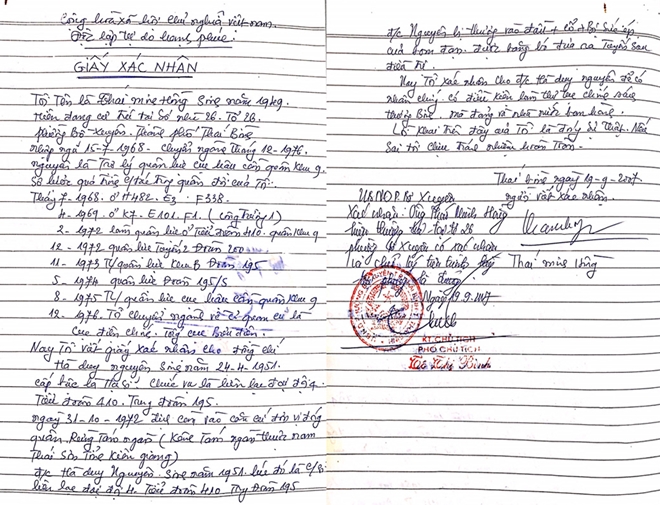 Cộng hòa xã hội chủ nghĩa việt nam.
Độc lập tự do hạnh phúc.
GIẤY XÁC NHẬN
Tôi Tên là Thái minh Hồng Sinh năm 1949.
Hiện đang cư trú tại Số nhà 26. Tổ 26.
phường Bồ Xuyên. Thành phố Thái Bình
nhập ngũ 15-7-1968. chuyển ngành Tháng 12-1976.
nguyên là Trợ lý quân lực cục hậu cần quân khu 9.
Sơ lược quá trình công tác trong quân đội của Tôi
Tháng 7-1968. ở H482. E3 F338.
4-1969. ở K7. E101. F1 (công trường 1)
2-1972 làm quân lực ở Tiểu đoàn 410. quân khu 9
12-1972 quân lực Tuyến 2 Đoàn 200
11-1973 TL/quân lực khu B Đoàn 195
5-1974 quân lực Đoàn 195/5
8-1975 TL/ quân lực cục hậu cần quân khu 9
12-1976. Tôi chuyển ngành về cơ quan cũ là
Cục điều chỉnh. Tổng cục Bưu điện.
Nay Tôi viết giấy xác nhận cho đồng chí
Hà duy nguyên Sinh năm 24-4-1951.
cấp bậc là Hạ sĩ. Chức vụ là liên lạc đại đội 4.
Tiểu đoàn 410. Trung đoàn 195.
ngày 31-10-1972 địch càn vào căn cứ đơn vị đóng
quân. Rừng Tám ngàn (Kênh Tám ngàn thuộc nam
Thái Sơn Tỉnh Kiên giang)
đ/c Hà duy Nguyên. Sinh năm 1951. lúc đó là c/sĩ
liên lạc đại đội 4. Tiểu đoàn 410 Trung Đoàn 195
đ/c Nguyên bị thương vào đầu + cổ + Bị sức ép
của bom đạn. được băng bó đưa ra Tuyến sau
điều trị.
Nay Tôi xác nhận cho đ/c Hà duy nguyên để có
nhân chứng có điều kiện làm thủ tục chứng nhận
thương Binh. mà đảng và nhà nước ban hành.
Lời khai Trên đây của Tôi là đúng Sự Thật. Nếu
Sai tôi chịu trách nhiệm hoàn Toàn.
Thái bình ngày 19-9-2007
người viết xác nhận.
Thái minh Hồng
UBND P. Bồ Xuyên
Xác nhận: Ông Thái Minh Hồng
hiện thường trú tại Tổ 26
phường Bồ Xuyên có xác nhận
Ngày 19.9.2007
KT. CHỦ TỊCH
PHÓ CHỦ TỊCH